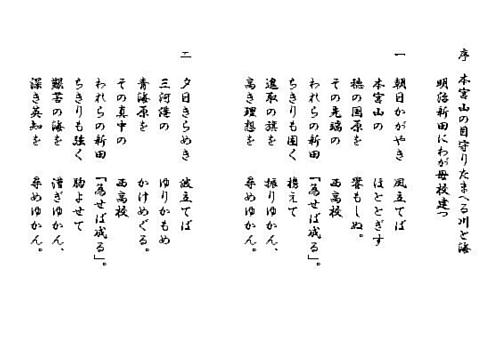 序 本宮山の目守りたまへる川と海
明治新田にわが母校建つ
一 朝日かがやき 風立てば
本宮山の ほととぎす
穂の国原を 響もしぬ。
その先端の 西高校
われらの新田 「為せば成る」。
ちきりも固く 携えて
進取の旗を 振りゆかん、
高き理想を 尋めゆかん。
二 夕日きらめき 波立てば
三河港の ゆりかもめ
青海原を かけめぐる。
その真中の 西高校
われらの新田 「為せば成る」。
ちきりも強く 胸よせて
艱苦の海を 漕ぎゆかん、
深き英知を 尋めゆかん。